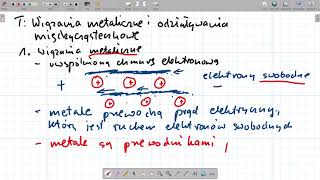 T: Wiązania metaliczne i oddziaływania
międzycząsteczkowe
1. Wiązania metaliczne
- uwspólniona chmura elektronowa
+ + + + elektrony swobodne
+ + +
- metale przewodzą prąd elektryczny,
który jest ruchem elektronów swobodnych
- metale są przewodnikami,